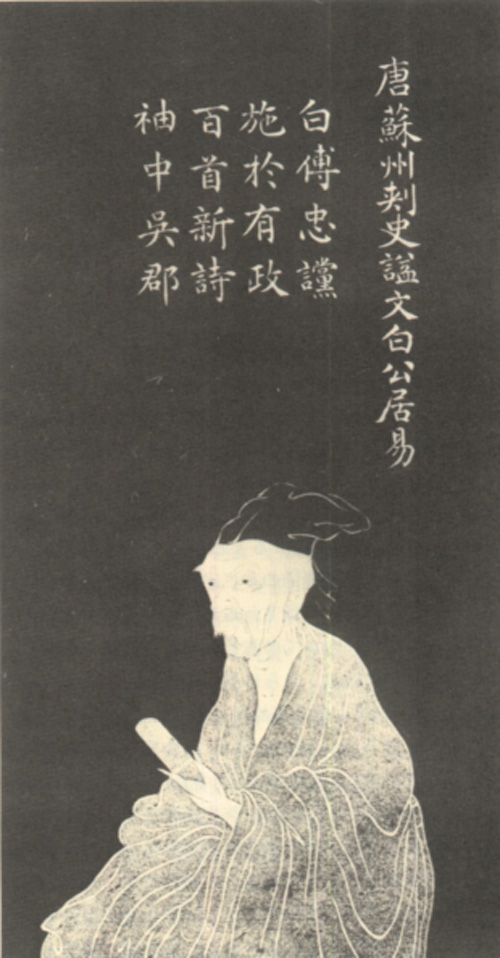 唐蘇州刺史謚文白公居易
白傅忠讜
施於有政
百首新詩
袖中吳郡